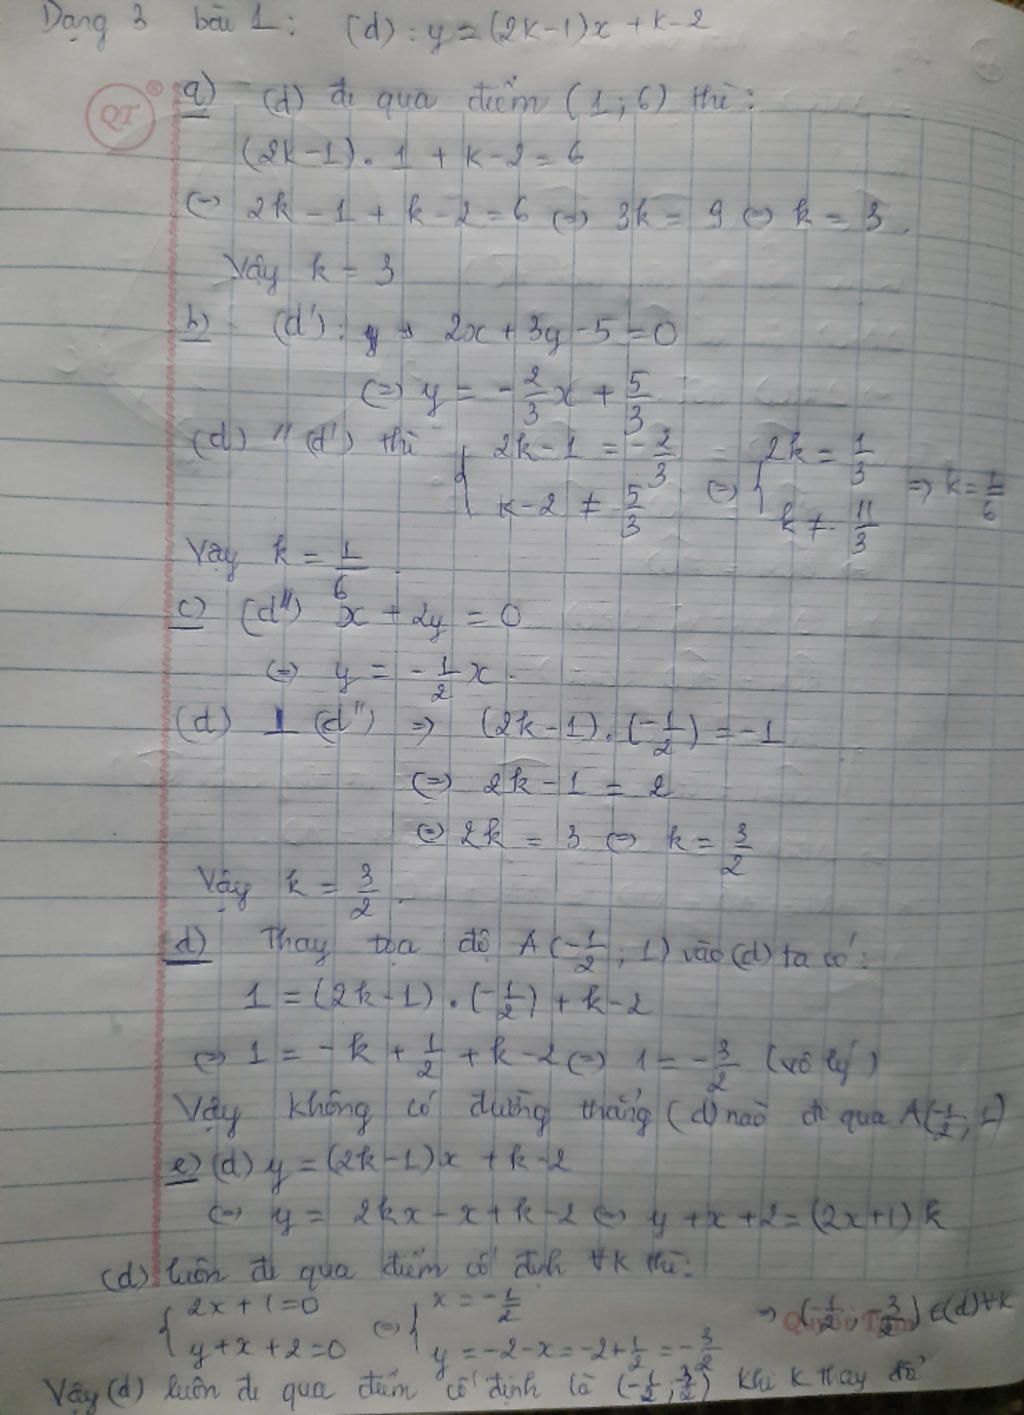 Dạng 3 bài 1: (d): y = (2k-1)x + k-2
QT ®
a) (d) đi qua điểm (1; 6) thì:
(2k-1). 1 + k-2 = 6
(=) 2k - 1 + k - 2 = 6 (=) 3k = 9 (=) k = 3.
Vậy k = 3
b) (d'): 2x + 3y - 5 = 0
(=) y = -2/3 x + 5/3
(d) // (d') thì { 2k-1 = -2/3 ; k-2 ≠ 5/3 (=) { 2k = 1/3 ; k ≠ 11/3 => k = 1/6
Vậy k = 1/6.
c) (d'') x + 2y = 0
(=) y = -1/2 x.
(d) ⊥ (d'') => (2k-1).(-1/2) = -1
(=) 2k-1 = 2
(=) 2k = 3 (=) k = 3/2
Vậy k = 3/2.
d) Thay tọa độ A(-1/2; 1) vào (d) ta có:
1 = (2k-1).(-1/2) + k-2
(=) 1 = -k + 1/2 + k-2 (=) 1 = -3/2 (vô lý)
Vậy không có đường thẳng (d) nào đi qua A(-1/2; 1)
e) (d) y = (2k-1)x + k-2
(=) y = 2kx - x + k-2 (=) y + x + 2 = (2x+1) k
(d) luôn đi qua điểm cố định ∀k thì:
{ 2x + 1 = 0 ; y + x + 2 = 0 (=) { x = -1/2 ; y = -2 - x = -2 + 1/2 = -3/2 => (-1/2; -3/2) ∈ (d) ∀k
Vậy (d) luôn đi qua điểm cố định là (-1/2; 3/2) khi k thay đổi